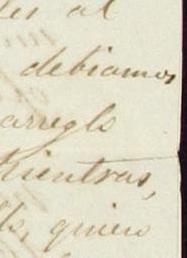 al
debiamos
arreglo
Mientras,
quiero